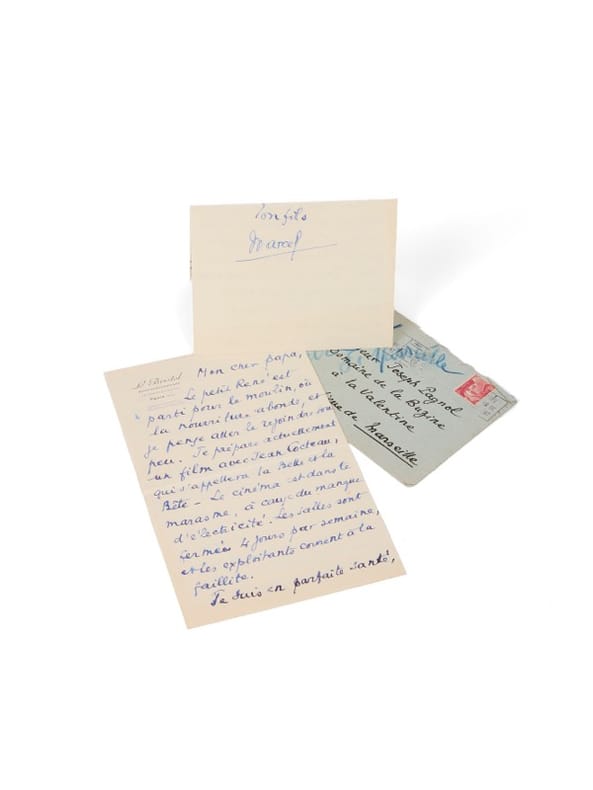 Ton fils
Marcel
Mon cher papa,
Le petit René est
parti pour le moulin, où
la nourriture abonde, et
je pense aller le rejoindre sous
peu. Je prépare actuellement
un film avec Jean Cocteau,
qui s'appellera la Belle et la
Bête - Le cinéma est dans le
marasme, à cause du manque
d'électricité. Les salles sont
fermées 4 jours par semaine,
et les exploitants courent à la
faillite.
Je suis en parfaite santé,
PARIS
Joseph Pagnol
Domaine de la Buzine
à la Valentine
de Marseille